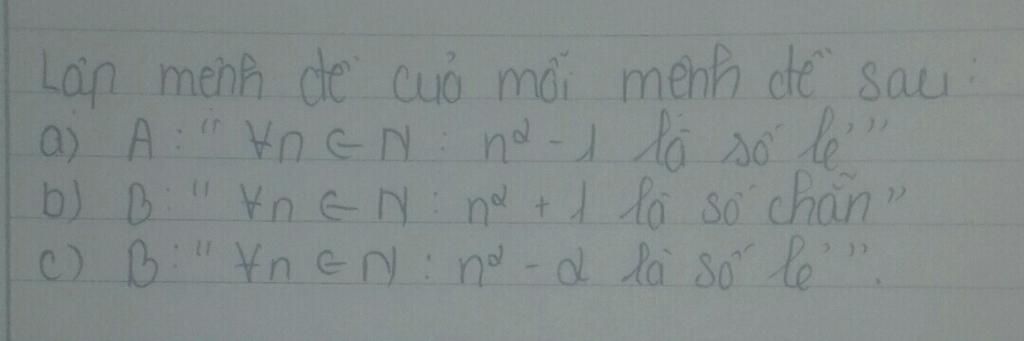 Lập mệnh đề của mỗi mệnh đề sau:
a) A: "∀n ∈ N: n² - 1 là số lẻ"
b) B: "∀n ∈ N: n² + 1 là số chẵn"
c) B: "∀n ∈ N: n² - 2 là số lẻ".